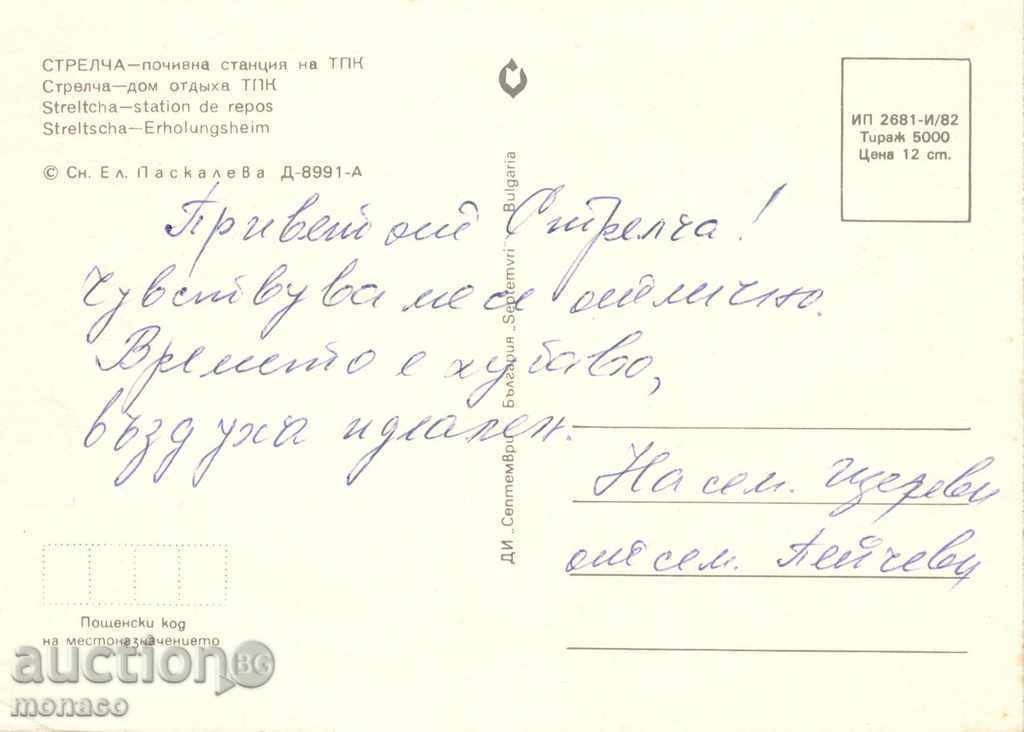 СТРЕЛЧА—почивна станция на ТПК
Стрелча—дом отдыха ТПК
Streltcha—station de repos
Streltscha—Erholungsheim
© Сн. Ел. Паскалева Д-8991-А
ИП 2681-И/82
Тираж 5000
Цена 12 ст.
Привет от Стрелча!
Чувствуваме се отлично.
Времето е хубаво,
въздуха идеален.
ДИ „Септември“ България „Septemvri“ Bulgaria
На сем. Щереви
от сем. Пейчеви
Пощенски код
на местоназначението
auction BG
monaco